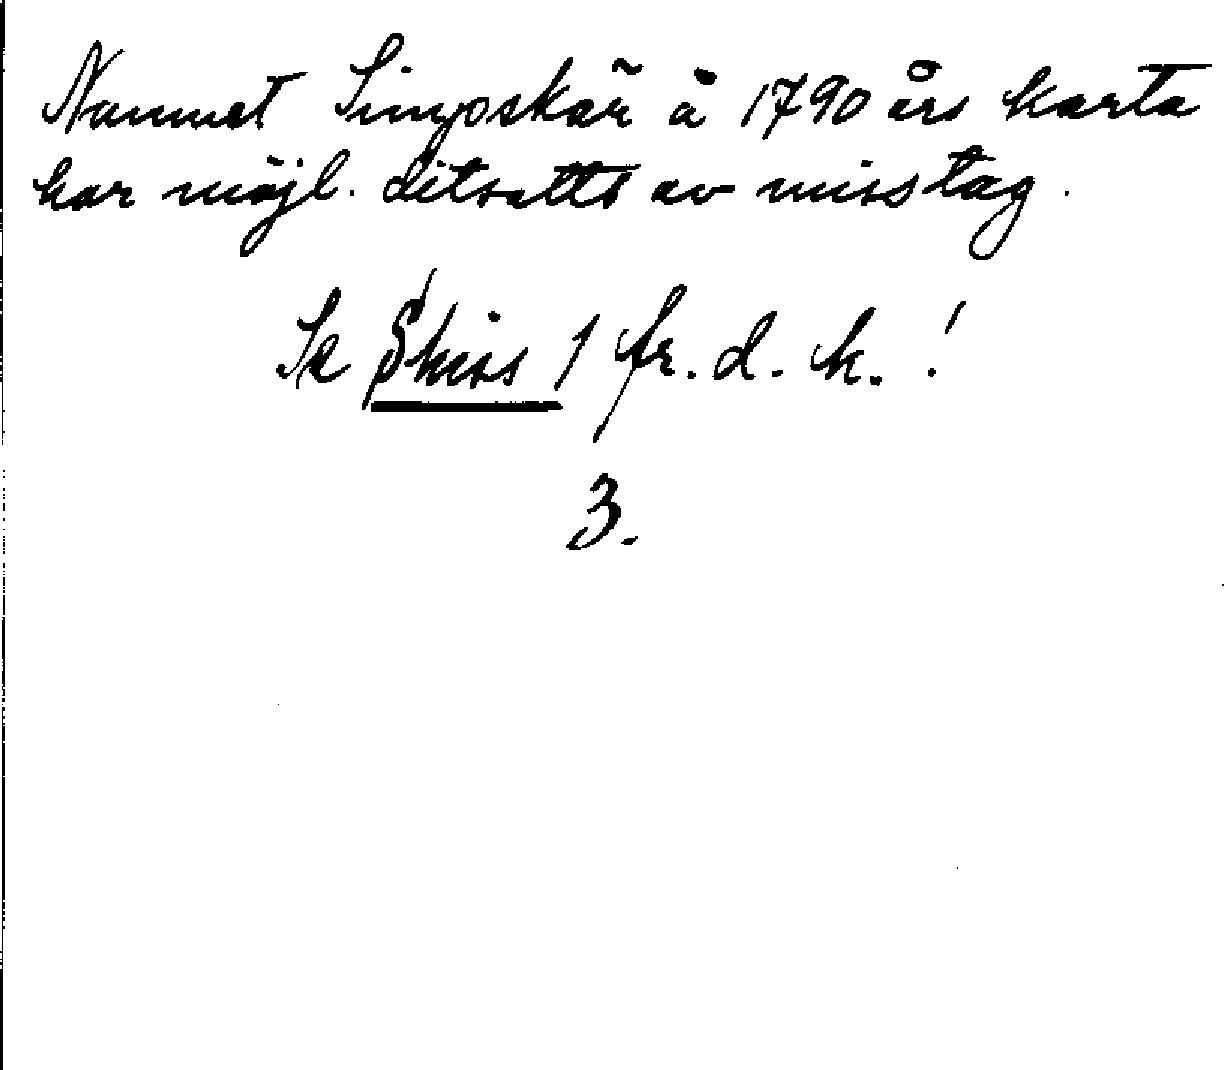 Namnet Simpskär å 1790 års karta
har möjl. ditsatts av misstag.
Se Skiss 1 fr. d. k. !
3.